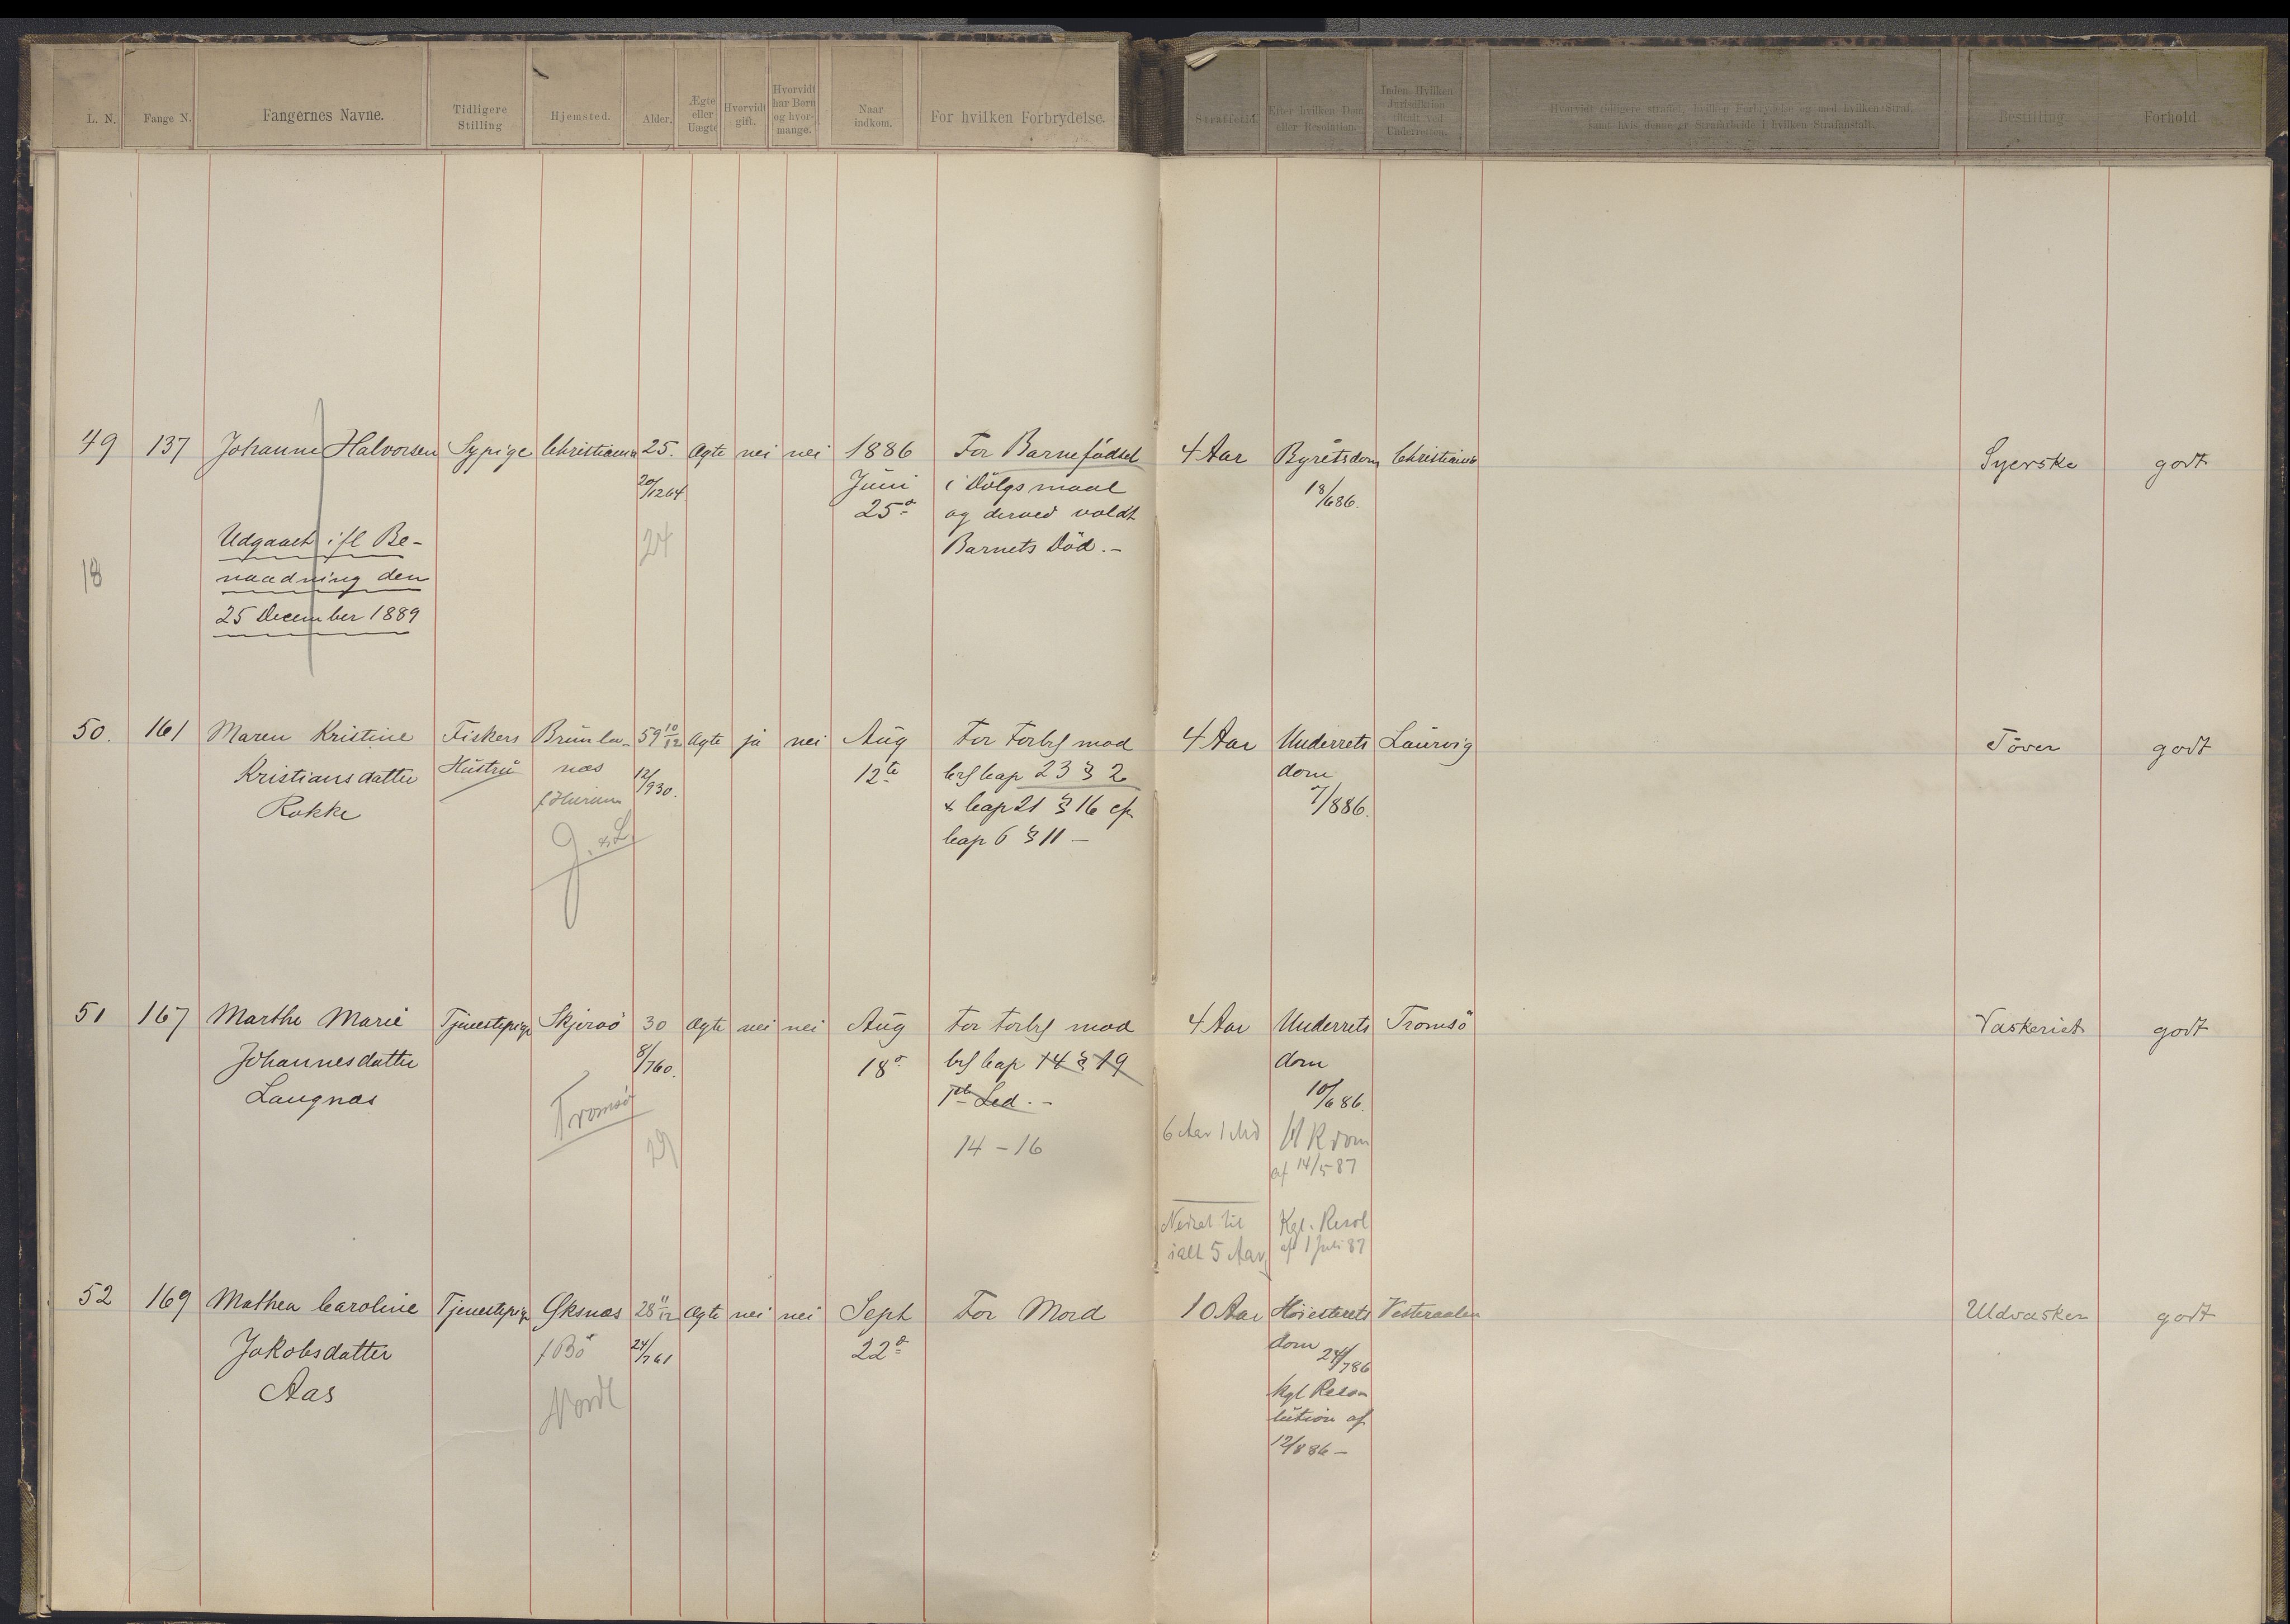 L. N.
Fange N.
Fangernes Navne.
Tidligere
Stilling
Hjemsted.
Alder.
Ægte
eller
Uægte
Hvorvidt
gift.
Hvorvidt
har Børn
og hvor-
mange.
Naar
indkom.
For hvilken Forbrydelse.
Straffetid.
Efter hvilken Dom
eller Resolution.
Inden Hvilken
Jurisdiktion
tiltalt ved
Underretten.
Hvorvidt tidligere straffet, hvilken Forbrydelse og med hvilken Straf,
samt hvis denne er Strafarbeide i hvilken Strafanstalt.
Bestilling
Forhold
49 137 Johanne Halvorsen Sypige Christiania 25. Ægte nei nei 1886 For Barnefødsel 4 Aar Byretsdom Christiania Syerske godt
20/1264 Juni i Dölgsmaal 18/686.
25de og derved voldt
Udgaaet ifl Be- 24 Barnets Död.-
18 naadning den
25 December 1889
50. 161 Maren Kristine Fiskers Brunla- 59 10/12 Ægte ja nei Aug For Forbr mod 4 Aar Underrets Laurvig Töver godt
Kristiansdatter Hustru næs 12/930. 12te Crl Cap 23 § 2 dom
Rokke f. Hurum & Cap 21 § 16 cfr 7/886.
J. & L. Cap 6 § 11 -
51 167 Marthe Marie Tjenestepige Skjervö 30 Ægte nei nei Aug For Forbr mod 4 Aar Underrets Tromsö Vaskeriet godt
Johannesdatter 8/760. 18de Crl Cap 14 § 19 dom
Langnæs 1ste Led.- 10/686.
Tromsö 29 14 - 16 6 Aar 1 Md HRdom
af 14/5-87
Nedsat til Kgl. Resol
ialt 5 Aar af 1 Juli 87
52 169 Mathea Caroline Tjenestepige Øksnæs 28 11/12 Ægte nei nei Sept For Mord 10 Aar Höiesterets Vesteraalen Udvasker godt
Jakobsdatter f Bö 24/761 22de dom 24/786
Aas Nordl Kgl Reso-
lution af
12/886 -